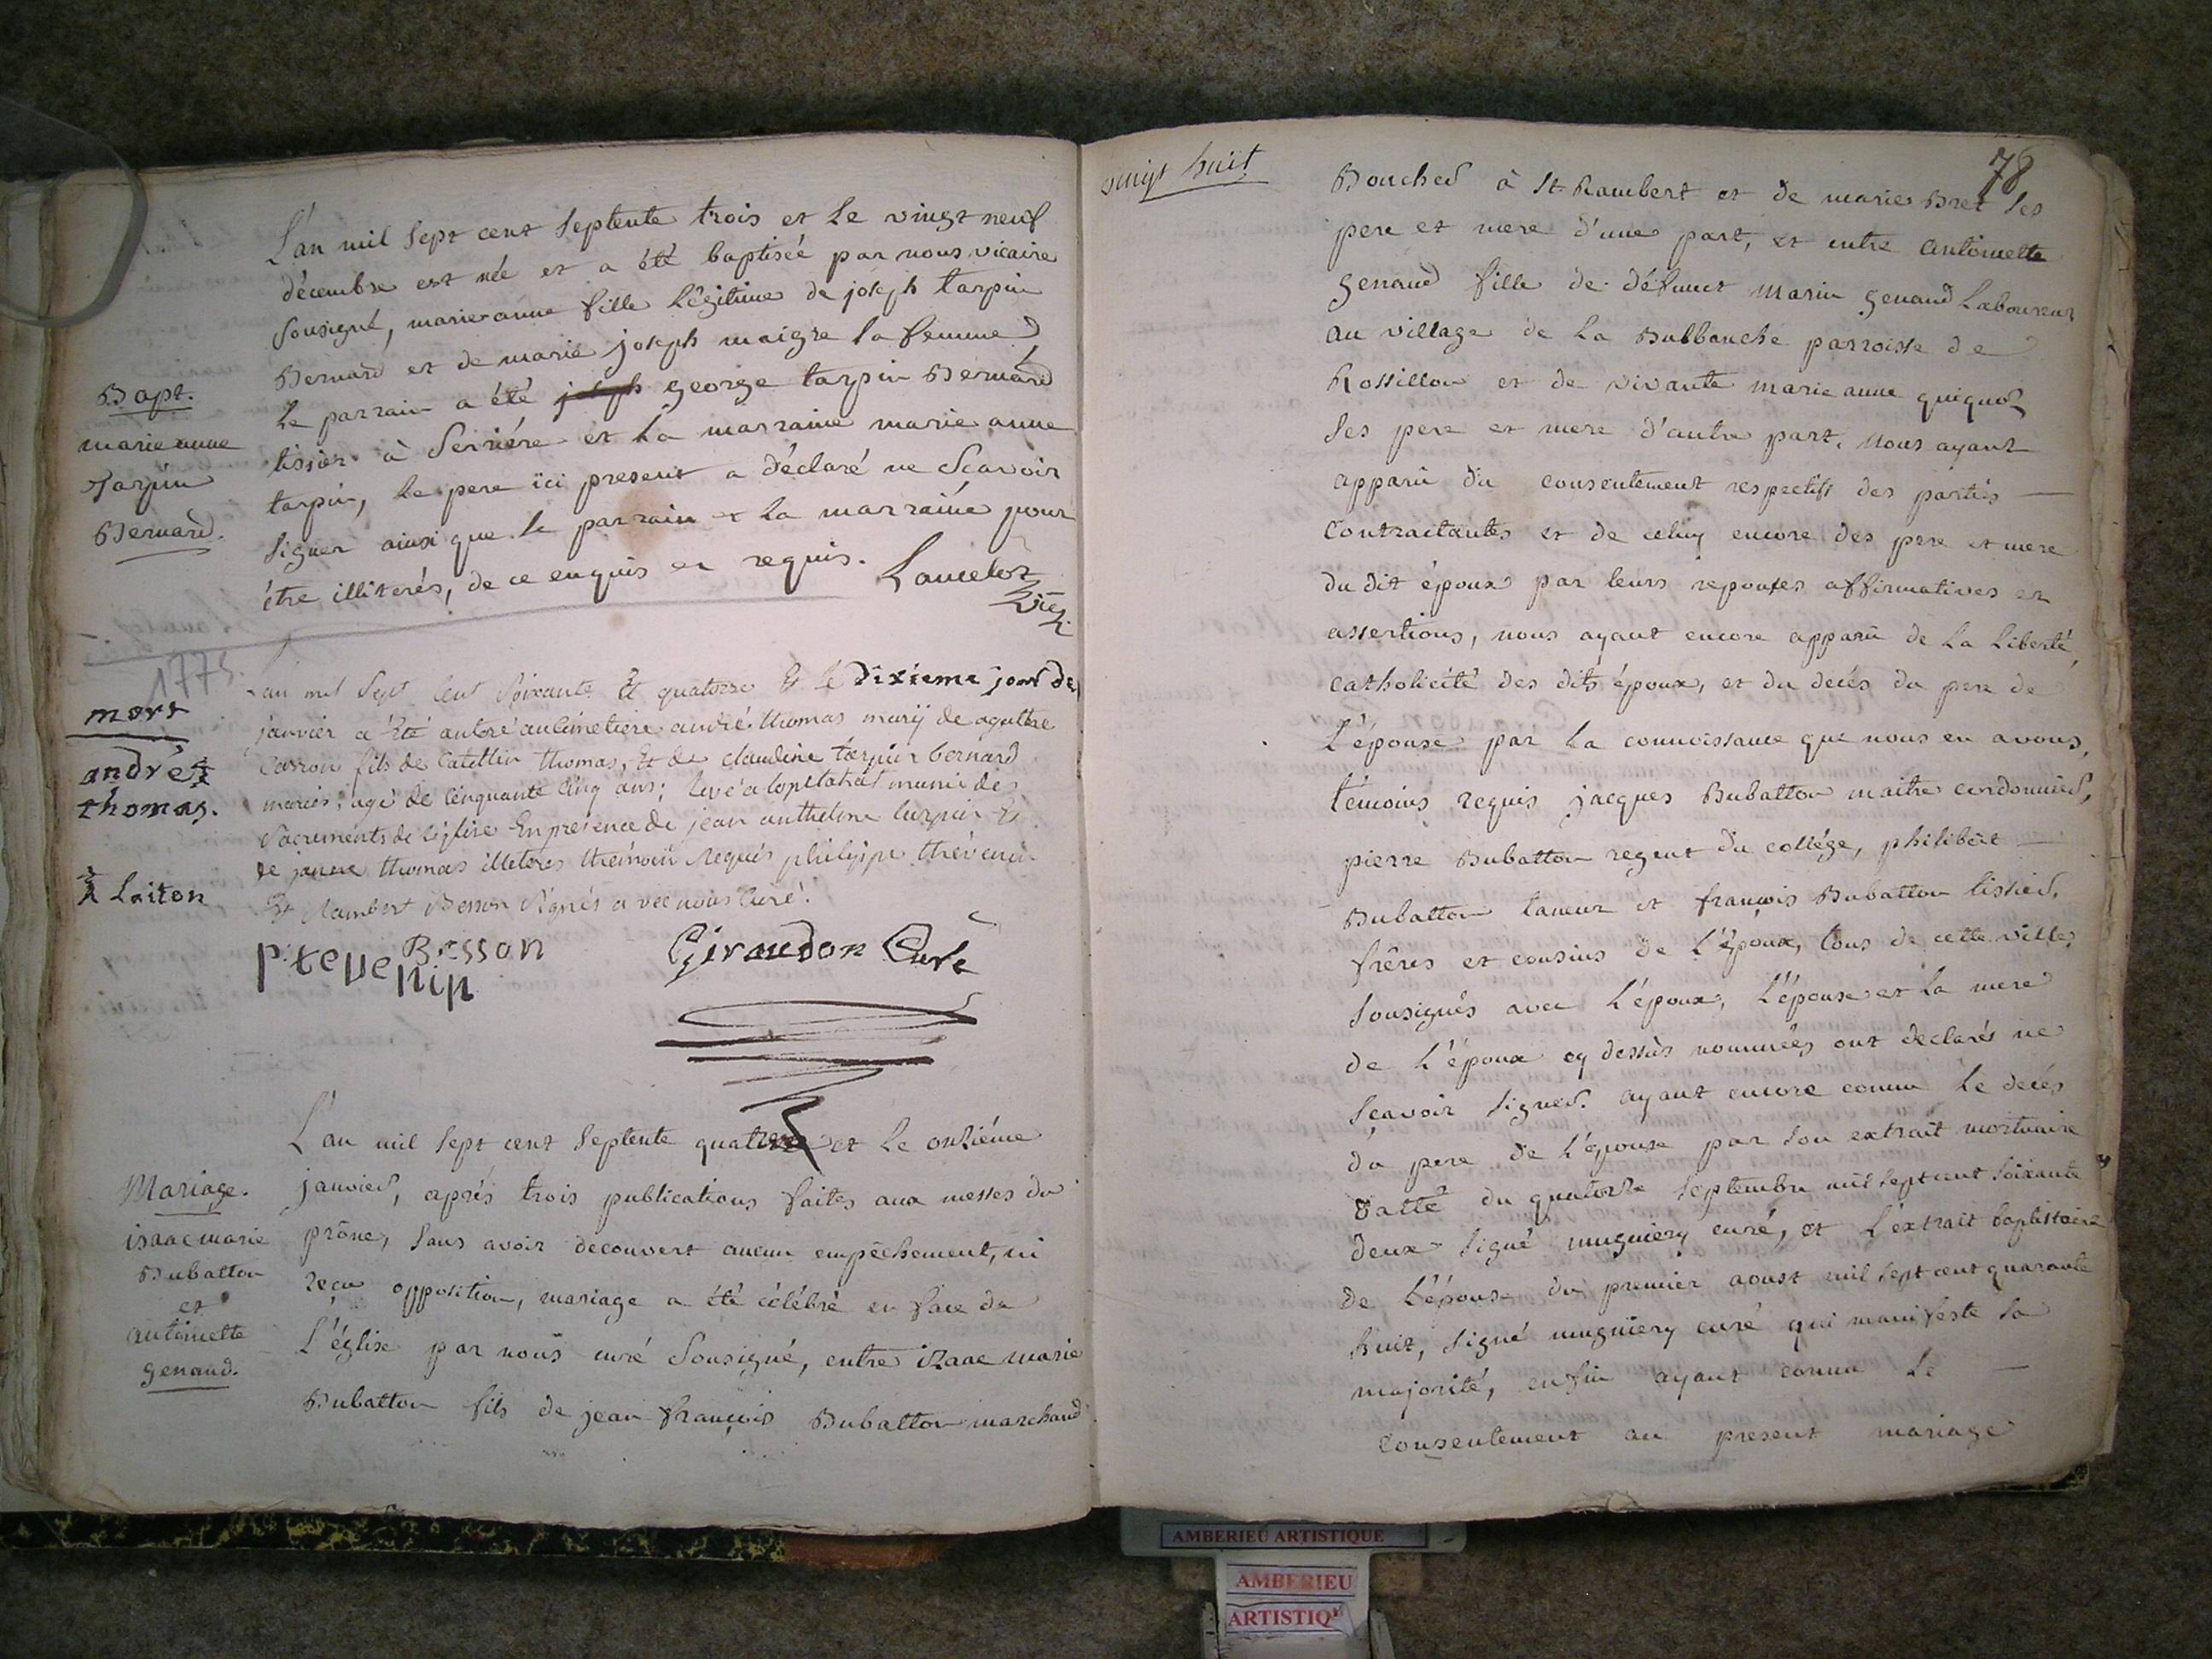 L'an mil sept cent septente trois et le vingt neuf
décembre est née et a été baptisée par nous vicaire
sousigné, marie anne fille légitime de joseph tarpin
Bernard et de marie joseph maigre sa femme
le parrain a été joseph george tarpin Bernard
tissier à Serriére et la marraine marie anne
tarpin, le pere ici present a déclaré ne scavoir
signer ainsi que le parrain et la marraine pour
être illiterés, de ce enquis et requis. Lancelot
vic
Bapt.
marie anne
Tarpin
Bernard.
1774
L'an mil sept cent soixante et quatorze et le dixieme jour de
janvier a été antéré au cimetiere andré thomas
fils de Catellin thomas, et de claudine tarpin bernard
mariés, agé de cinquante cinq ans; munie des
sacrements de l'église En presence de jean anthelme turpin et
de thomas illiteres requis philippe thévenin
Et Rambert Besson signés avec nous curé.
mort
andré
thomas.
Laiton
p. tevenin
Besson
Giraudon Curé
L'an mil sept cent septente quatre et le onziéme
janvier, aprés trois publications faites aux messes du
prône, sans avoir decouvert aucun empêchement, ni
reçu opposition, mariage a été célébré en face de
l'église par nous curé sousigné, entre izaac marie
Dubatton fils de jean françois Dubatton marchand
Mariage.
isaac marie
Dubatton
et
antoinette
genaud.
vingt huit
78
Boucher à St. Rambert et de marie Bret ses
pere et mere d'une part, et entre antoinette
genaud fille de défunct marin genaud laboureur
au village de la parroisse de
Rossillon et de vivante marie anne
ses pere et mere d'autre part. nous ayant
apparu du consentement respectifs des parties
contractantes et de celuy encore des pere et mere
du dit époux par leurs reponses affirmatives et
assertions, nous ayant encore apparu de la liberté,
catholicité des dits époux, et du decés du pere de
l'épouse par la connoissance que nous en avons,
témoins requis jacques Dubatton maitre cordonnier,
pierre Dubatton regent du collége, philibert
Dubatton taneur et françois Dubatton tissier,
fréres et cousins de l'époux, tous de cette ville
sousignés avec l'époux, l'épouse et la mere
de l'époux cy dessus nommées ont declarés ne
sçavoir signer. ayant encore connu le decés
du pere de l'épouse par son extrait mortuaire
datté du quatorze septembre mil sept cent soixante
deux signé mugniery curé, et l'extrait baptistaire
de l'épouse du premier aoust mil sept cent quarante
huit, signé mugniery curé qui manifeste sa
majorité, enfin ayant connu le
consentement au present mariage
AMBERIEU ARTISTIQUE
AMBERIEU
ARTISTIQ